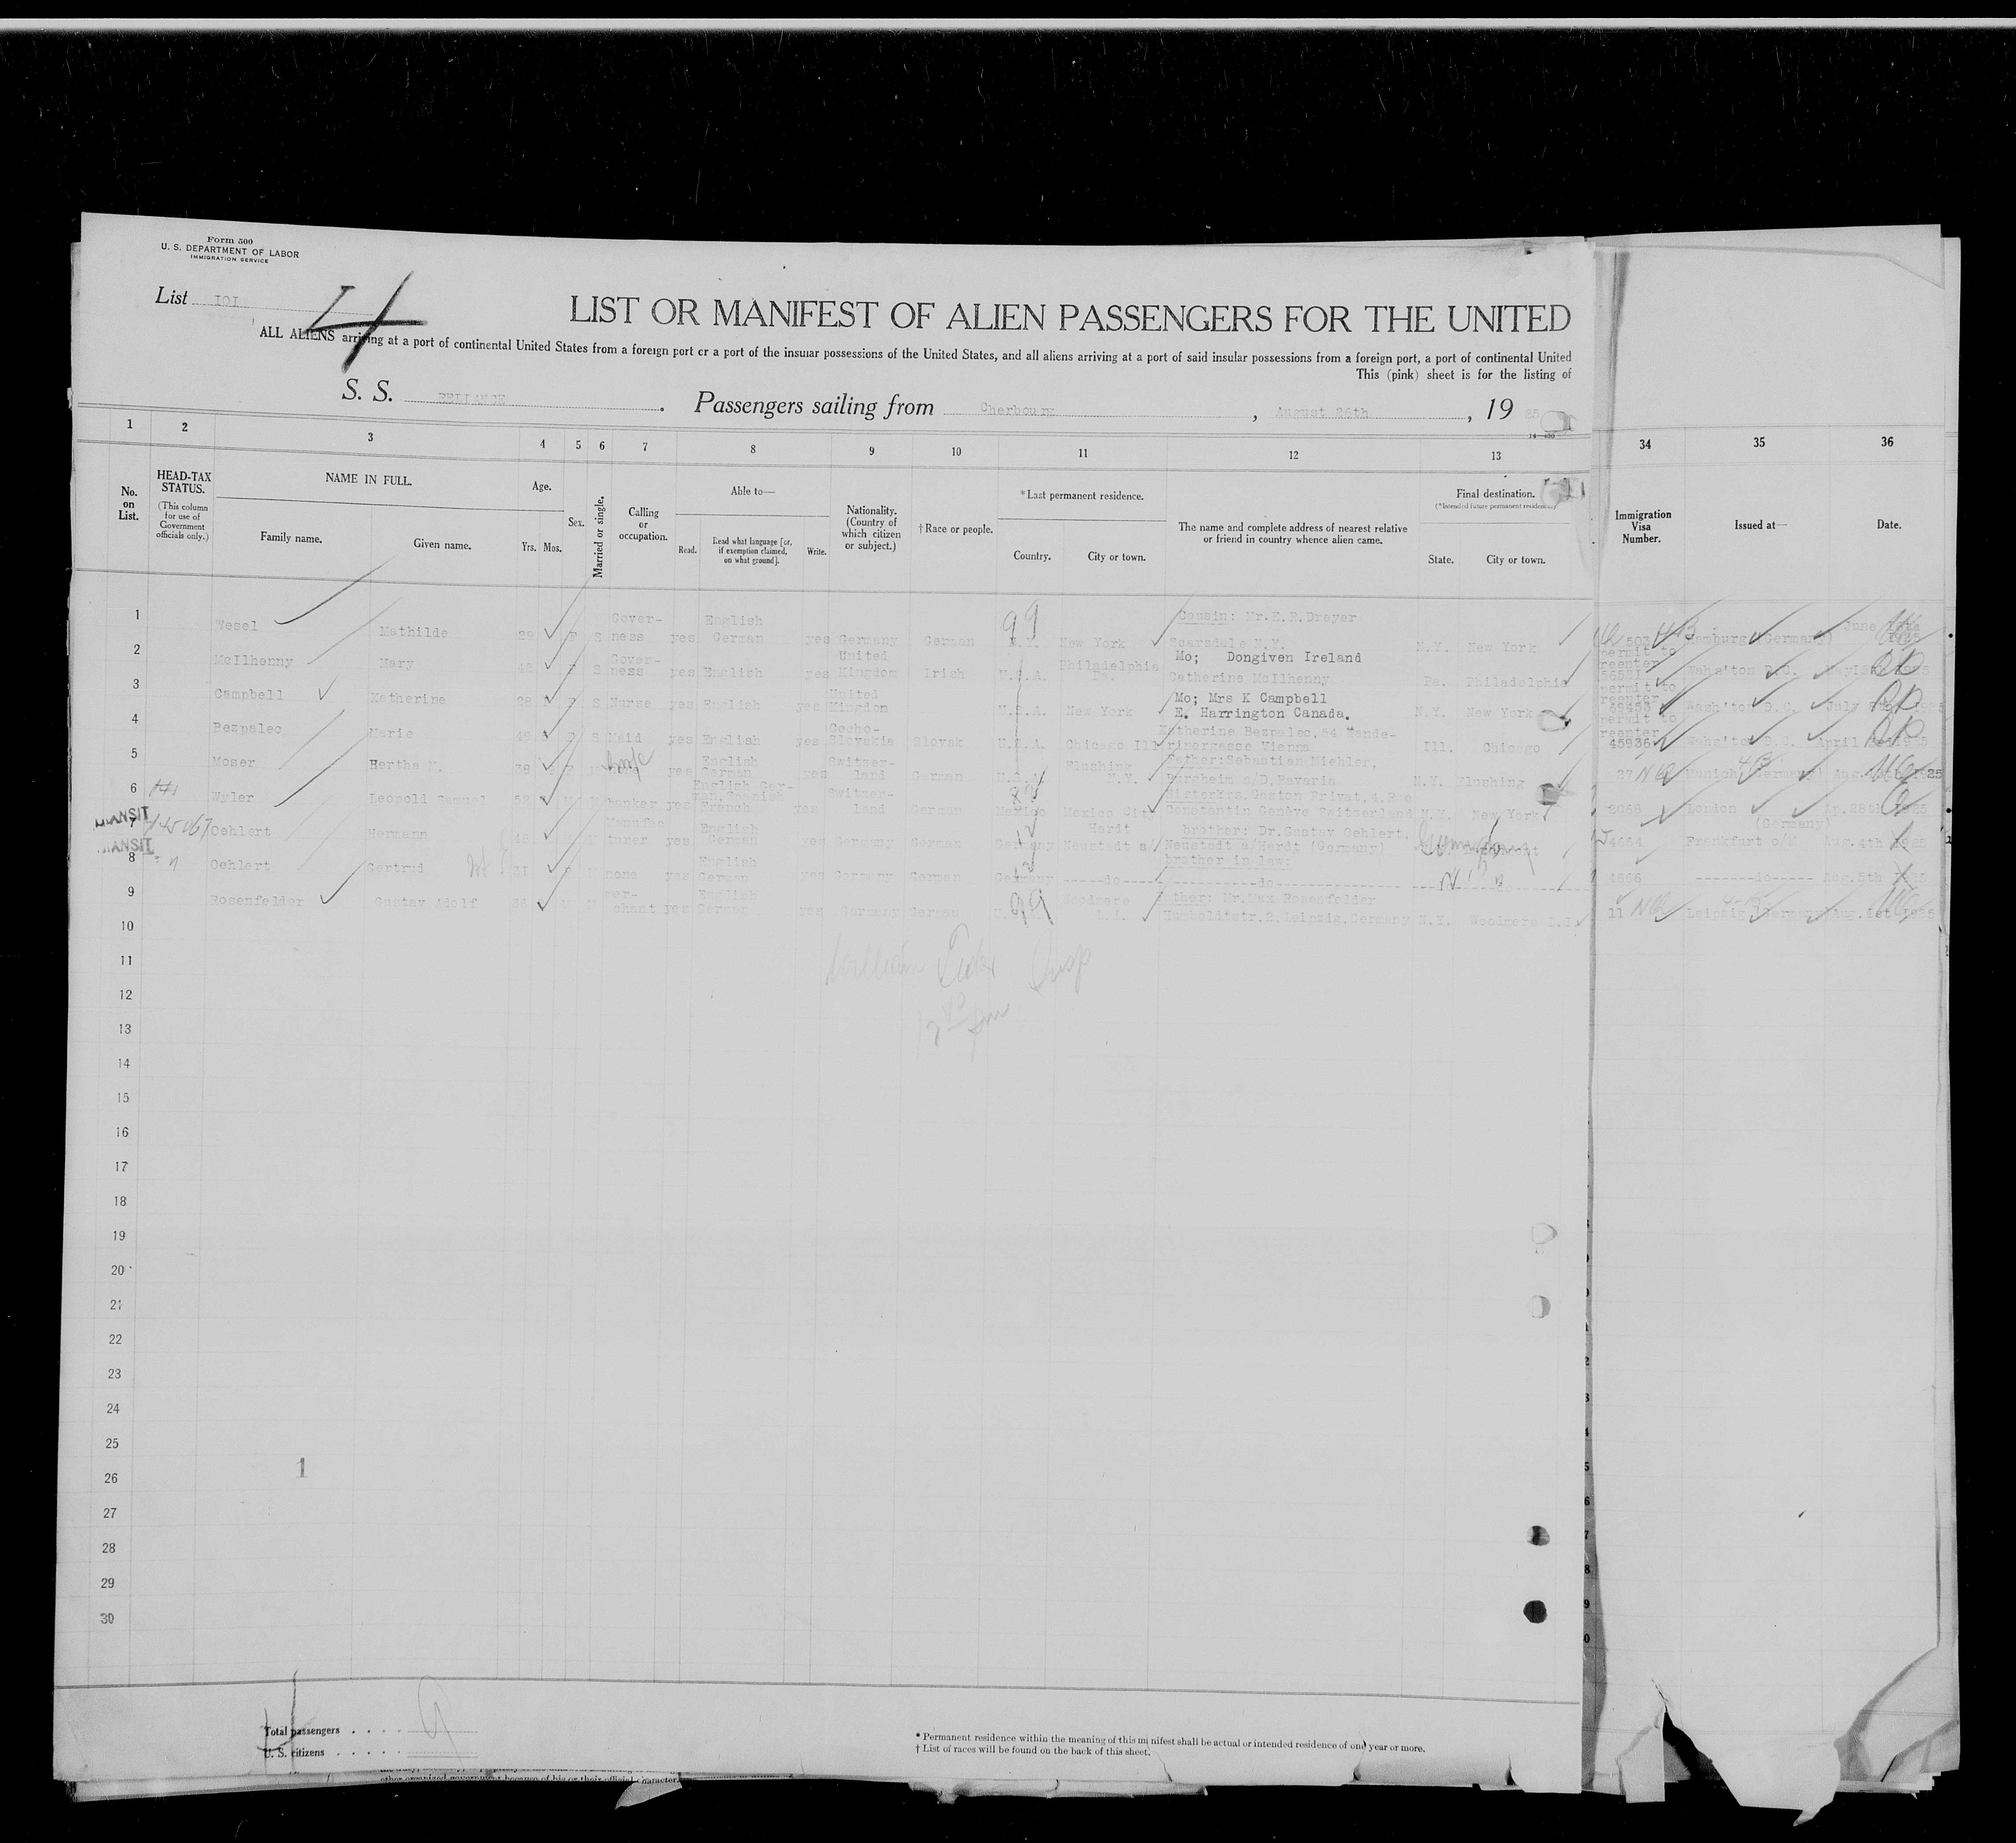 Form 500
U. S. DEPARTMENT OF LABOR
IMMIGRATION SERVICE
List IOI
LIST OR MANIFEST OF ALIEN PASSENGERS FOR THE UNITED
ALL ALIENS arriving at a port of continental United States from a foreign port or a port of the insular possessions of the United States, and all aliens arriving at a port of said insular possessions from a foreign port, a port of continental United
This (pink) sheet is for the listing of
S. S. RELIANCE. Passengers sailing from Cherbourg, August 26th, 19 25
1 2 3 4 5 6 7 8 9 10 11 12 13 34 35 36
No. on List.
HEAD-TAX STATUS.
(This column for use of Government officials only.)
NAME IN FULL.
Family name. Given name.
Age.
Yrs. Mos.
Sex.
Married or single.
Calling or occupation.
Able to—
Read. Read what language [or, if exemption claimed, on what ground]. Write.
Nationality. (Country of which citizen or subject.)
†Race or people.
*Last permanent residence.
Country. City or town.
The name and complete address of nearest relative or friend in country whence alien came.
Final destination.
(*Intended future permanent residence.)
State. City or town.
Immigration Visa Number.
Issued at—
Date.
1 Wesel Mathilde 29 F S Governess yes English German yes Germany German N.Y. New York Cousin: Mr.E.R.Dreyer Scarsdale N.Y. N.Y. New York 503 Hamburg (Germany) June 1925
2 McIlhenny Mary 42 F S Governess yes English yes United Kingdom Irish U.S.A. Philadelphia Pa. Mo; Dongiven Ireland Catherine McIlhenny Pa. Philadelphia permit to reenter Wash'ton D.C. 1925
3 Campbell Katherine 28 F S Nurse yes English yes United Kingdom U.S.A. New York Mo; Mrs K Campbell E. Harrington Canada. N.Y. New York permit to reenter Wash'ton D.C. July
4 Bezpalec Marie 49 F S Maid yes English yes Cecho-Slovakia Slovak U.S.A. Chicago Ill Katherine Bezpalec, 54 Vienna Ill. Chicago permit to reenter 45936 Wash'ton D.C. April 1925
5 Moser Hertha M. 38 F yes English German yes Switzerland German Flushing N.Y. Father:Sebastian Miehler, Burgheim a/D,Bavaria N.Y. Flushing 27 Munich (Germany) Aug. 1925
6 Wyler Leopold Samuel 52 banker yes English German French yes Switzerland German Mexico Mexico City Gaston Privat,4,Rue Constantin Genève Switzerland N.Y. New York 2068 London Ap.28th 1925
TRANSIT
7 Oehlert Hermann 46 Manufacturer yes English German yes Germany German Germany Neustadt a/Hardt brother: Dr.Gustav Oehlert, Neustadt a/Hardt (Germany) 4664 Frankfurt o/M (Germany) Aug.4th 1925
TRANSIT
8 Oehlert Gertrud 31 none yes English German yes Germany German Germany -----do----- brother in law: ----------do---------- 4666 -------do----- Aug.5th 1925
9 Rosenfelder Gustav Adolf 36 merchant yes English German yes Germany German Woodmere L.I. Father: Mr.Max Rosenfelder Humboldtstr.2.Leipzig.Germany N.Y. Woodmere L.I. 11 Leipzig Germany Aug.1st 1925
10
11
12
13
14
15
16
17
18
19
20
21
22
23
24
25
26
27
28
29
30
1
Total passengers . . . . 9
U. S. citizens . . . . .
* Permanent residence within the meaning of this manifest shall be actual or intended residence of one year or more.
† List of races will be found on the back of this sheet.